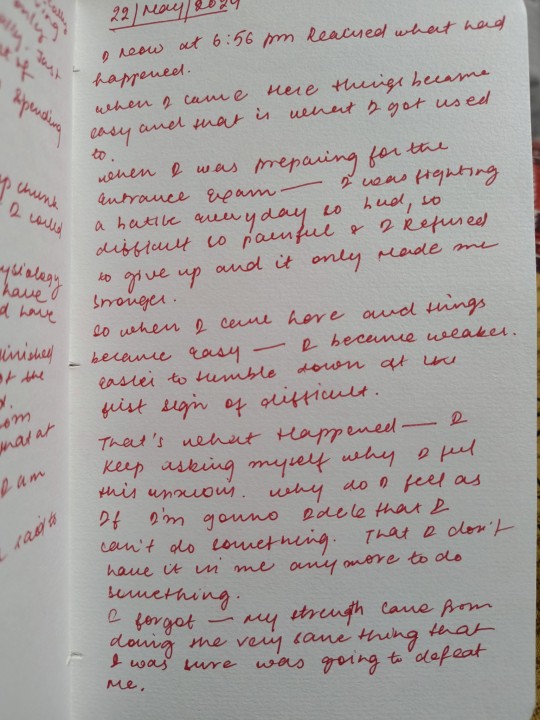 only
Just
of
Spending
chunk
I could
physiology
have
d have
at the
from
that at
I am
said to
22/May/2024
I now at 6:56 pm Realised what had
happened.
when I came here things became
easy and that is what I got used
to.
when I was preparing for the
Entrance Exam — I was fighting
a battle everyday so hard, so
difficult so painful & I Refused
to give up and it only Made me
Stronger.
so when I came here and things
became easy — I became weaker.
easier to tumble down at the
first sign of difficult.
That's what Happened — I
keep asking myself why I feel
this anxious. why do I feel as
If I'm gonna that I
can't do something. That I don't
have it in me anymore to do
something.
I forgot — my strength came from
doing the very same thing that
I was sure was going to defeat
Me.